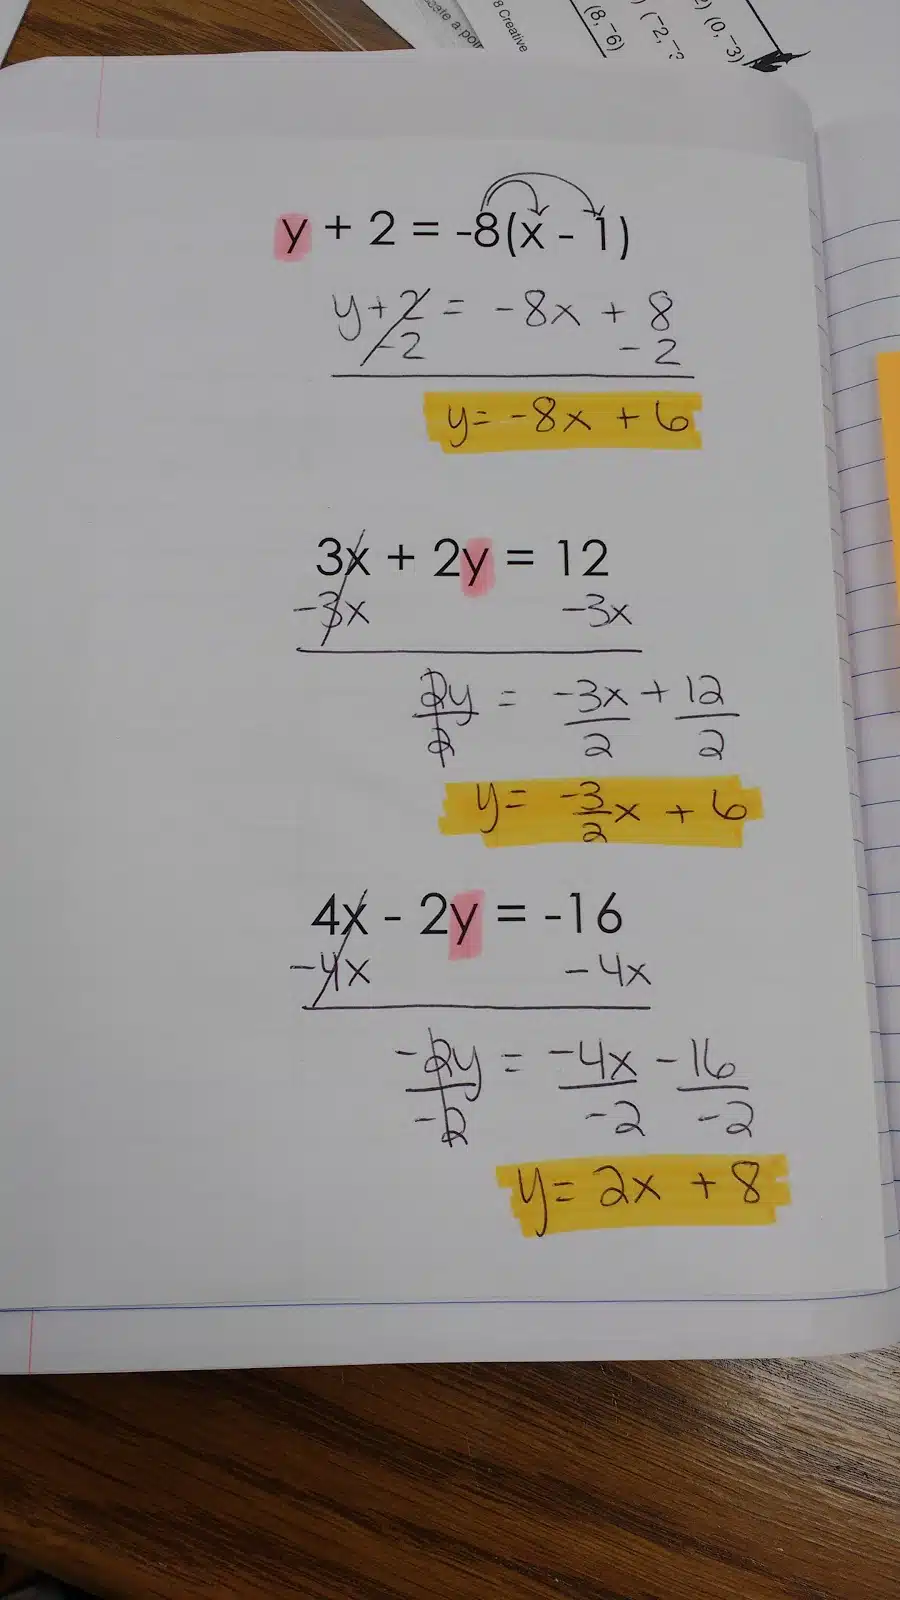 cate a poi
8 Creative
(8, ⁻6)
) (⁻2, ⁻3
2) (0, ⁻3)
y + 2 = -8(x - 1)
y + 2 = -8x + 8
-2 -2
y = -8x + 6
3x + 2y = 12
-3x -3x
2y/2 = -3x/2 + 12/2
y = -3/2x + 6
4x - 2y = -16
-4x -4x
-2y/-2 = -4x/-2 - 16/-2
y = 2x + 8